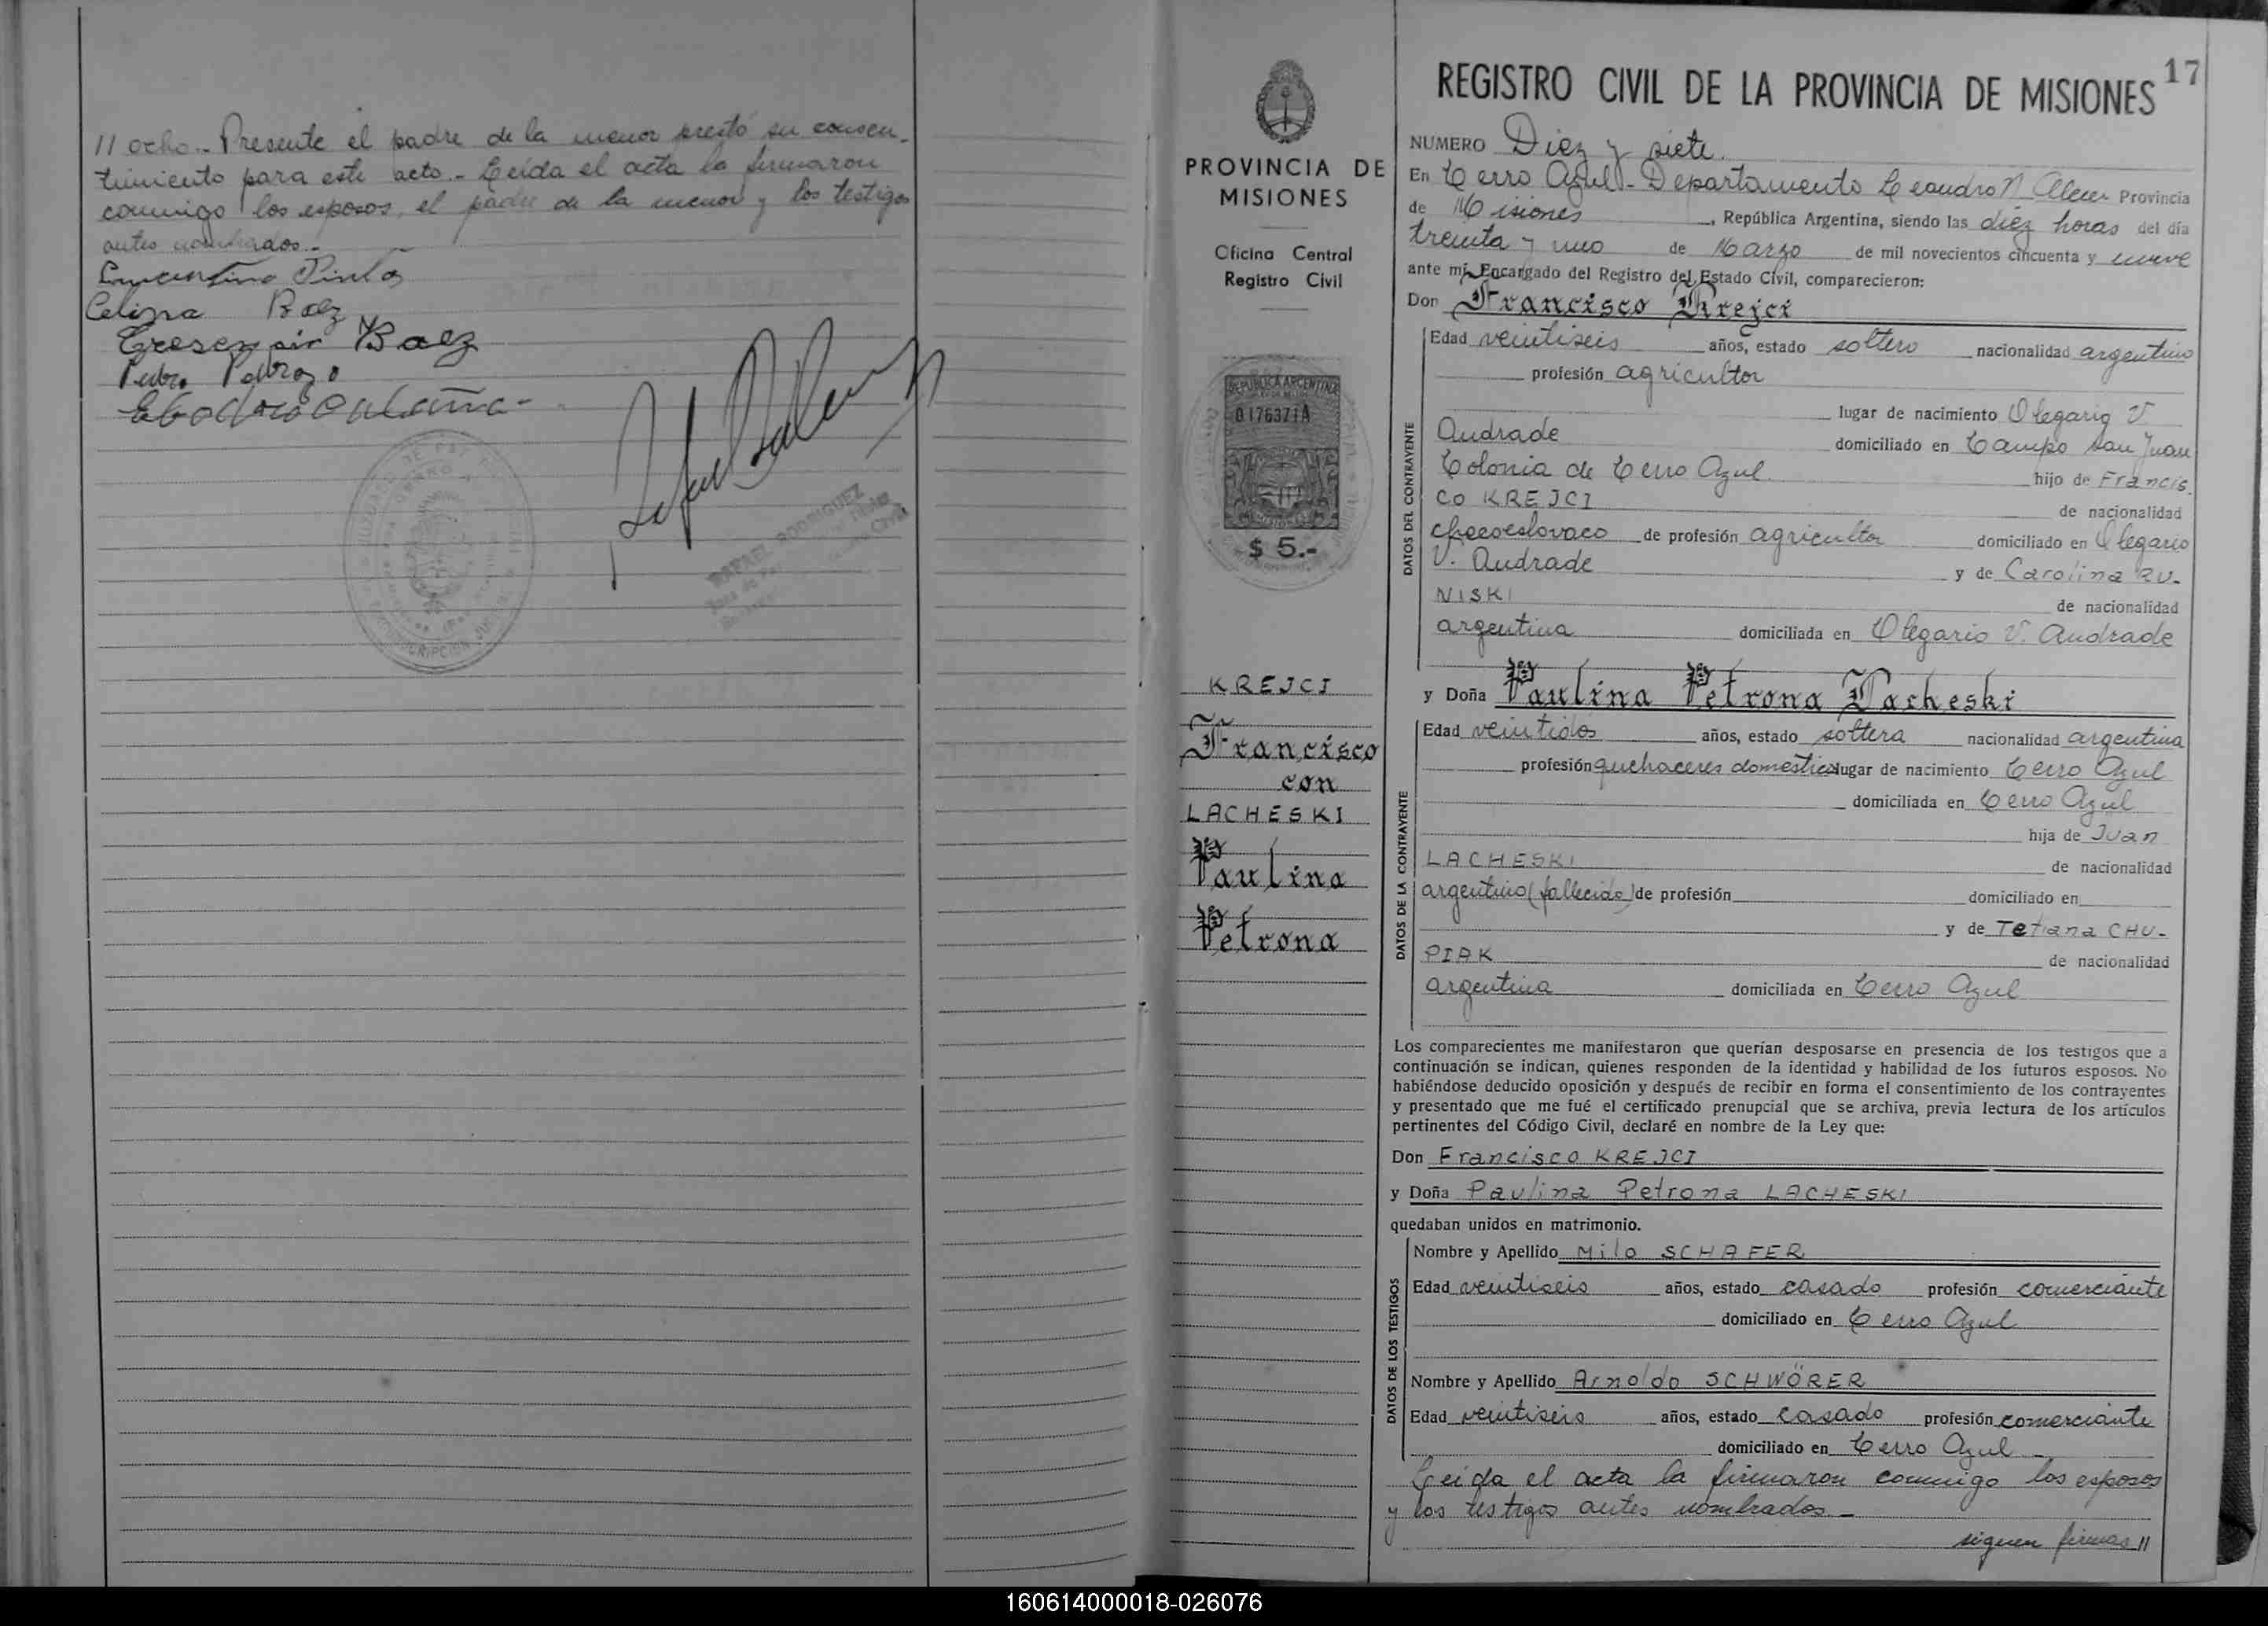 11 ocho.- Presente el padre de la menor prestó su consen-
timiento para este acto.- Leída el acta la firmaron
conmigo los esposos, el padre de la menor y los testigos
antes nombrados.-
Pinto
Celina Baez
Baez
Pedro Pedrozo
RAFAEL RODRIGUEZ
Juez de Paz
PROVINCIA DE
MISIONES
Oficina Central
Registro Civil
REPUBLICA ARGENTINA
0176371A
MISIONES
$ 5.-
KREJCI
Francisco
con
LACHESKI
Paulina
Petrona
17
REGISTRO CIVIL DE LA PROVINCIA DE MISIONES
NUMERO Diez y siete.
En Cerro Azul - Departamento Leandro N. Alem Provincia
de Misiones, República Argentina, siendo las diez horas del día
treinta y uno de Marzo de mil novecientos cincuenta y nueve
ante mi, Encargado del Registro del Estado Civil, comparecieron:
Don Francisco Krejci
DATOS DEL CONTRAYENTE
Edad veintiseis años, estado soltero nacionalidad argentino
profesión agricultor
lugar de nacimiento Olegario V.
Andrade domiciliado en Campo San Juan
Colonia de Cerro Azul. hijo de Francis.
co KREJCI de nacionalidad
checoeslovaco de profesión agricultor domiciliado en Olegario
V. Andrade y de Carolina RU-
NISKI de nacionalidad
argentina domiciliada en Olegario V. Andrade
y Doña Paulina Petrona Lacheski
DATOS DE LA CONTRAYENTE
Edad veintidos años, estado soltera nacionalidad argentina
profesión quehaceres domesticos lugar de nacimiento Cerro Azul
domiciliada en Cerro Azul
hija de Juan
LACHESKI de nacionalidad
argentino (fallecido) de profesión domiciliado en
y de Tetiana CHU-
PIAK de nacionalidad
argentina domiciliada en Cerro Azul
Los comparecientes me manifestaron que querían desposarse en presencia de los testigos que a
continuación se indican, quienes responden de la identidad y habilidad de los futuros esposos. No
habiéndose deducido oposición y después de recibir en forma el consentimiento de los contrayentes
y presentado que me fué el certificado prenupcial que se archiva, previa lectura de los artículos
pertinentes del Código Civil, declaré en nombre de la Ley que:
Don Francisco KREJCI
y Doña Paulina Petrona LACHESKI
quedaban unidos en matrimonio.
DATOS DE LOS TESTIGOS
Nombre y Apellido Milo SCHAFER
Edad veintiseis años, estado casado profesión comerciante
domiciliado en Cerro Azul
Nombre y Apellido Arnoldo SCHWÖRER
Edad veintiseis años, estado casado profesión comerciante
domiciliado en Cerro Azul
Leída el acta la firmaron conmigo los esposos
y los testigos antes nombrados.-
siguen firmas 11
160614000018-026076